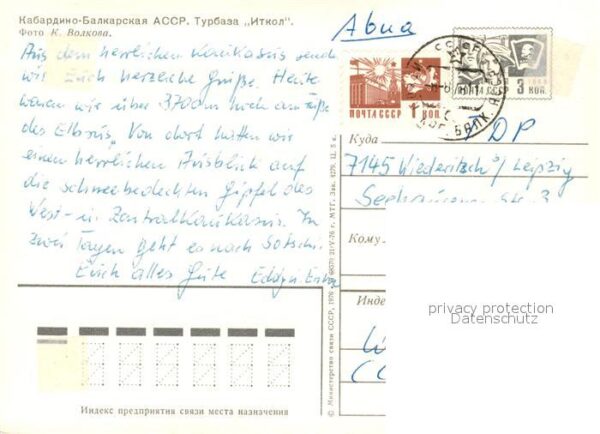 Кабардино-Балкарская АССР. Турбаза „Иткол".
Фото К. Волкова.
Авиа
Aus dem herrlichen Kaukasus senden
wir Euch herzliche Grüße. Heute
waren wir über 3700 m hoch am Fuße
des Elbrus. Von dort hatten wir
einen herrlichen Ausblick auf
die schneebedeckten Gipfel des
West- u. Zentralkaukasus. In
zwei Tagen geht es nach Sotschi.
Euch alles Gute
ПОЧТА СССР 1 КОП.
ПОЧТА 3 КОП.
Куда DDR
7145 Wiederitzsch b/ Leipzig
Кому
Инде
privacy protection
Datenschutz
© Министерство связи СССР, 1976
Индекс предприятия связи места назначения